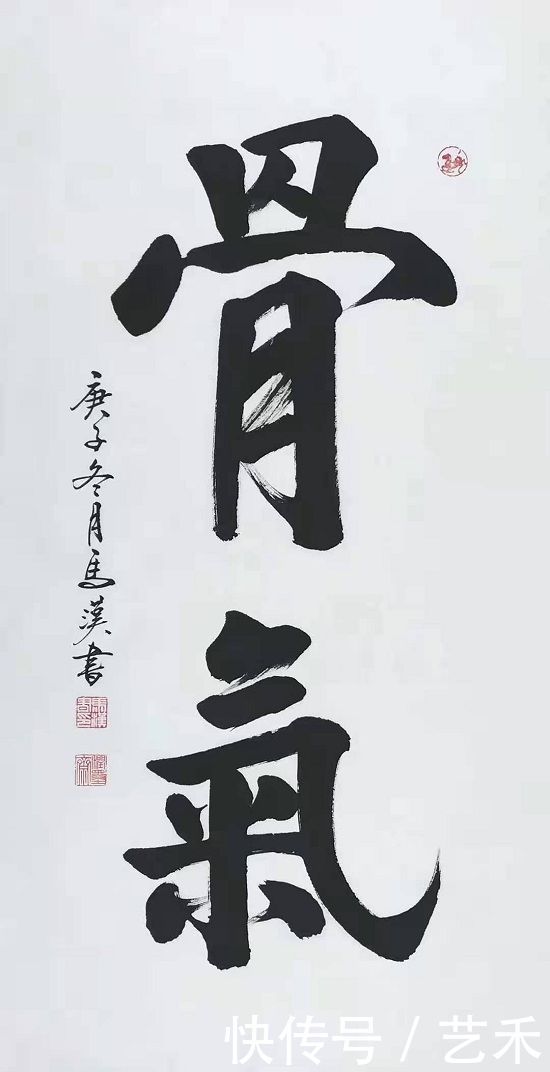 骨氣
庚子冬月馬漢書
快传号 / 艺禾